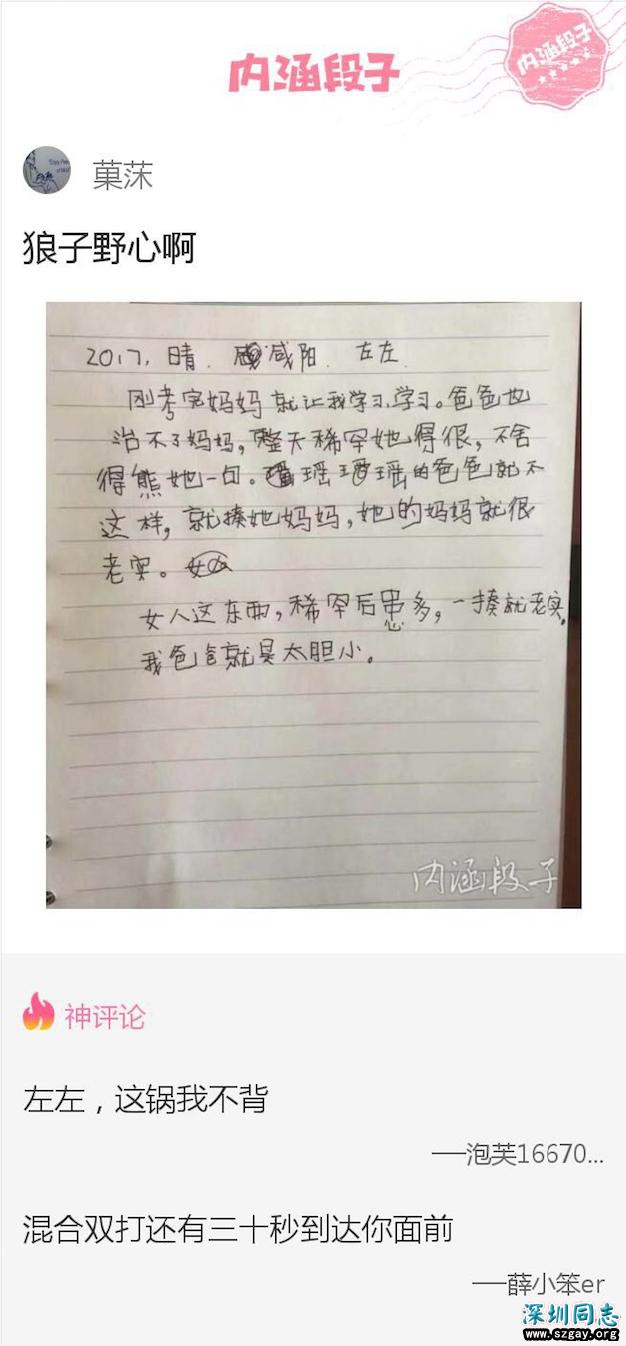 内涵段子
内涵段子
菓莯
狼子野心啊
2017. 晴. 咸阳. 左左.
刚考完妈妈就让我学习学习。爸爸也
治不了妈妈，整天稀罕她得很，不舍
得熊她一句。瑶瑶的爸爸就不
这样，就揍她妈妈，她的妈妈就很
老实。
女人这东西，稀罕后患多，一揍就老实。
我爸爸就是太胆小。
内涵段子
神评论
左左，这锅我不背
──泡芙16670...
混合双打还有三十秒到达你面前
──薛小笨er
深圳同志
www.szgay.org